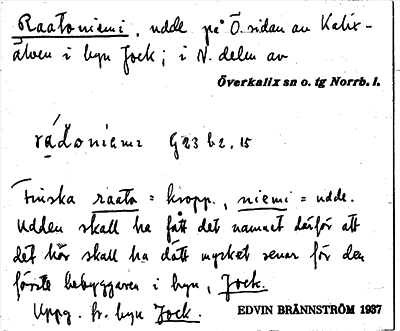 Raatoniemi, udde på Ö. sidan av Kalix-
älven i byn Jock; i N. delen av
Överkalix sn o. tg Norrb. l.
rádoniemi G23 b2.15
Finska raato = kropp, niemi = udde.
Udden skall ha fått det namnet därför att
det här skall ha dött mycket renar för den
förste bebyggaren i byn, Jock.
Uppg. fr. byn Jock.
EDVIN BRÄNNSTRÖM 1937